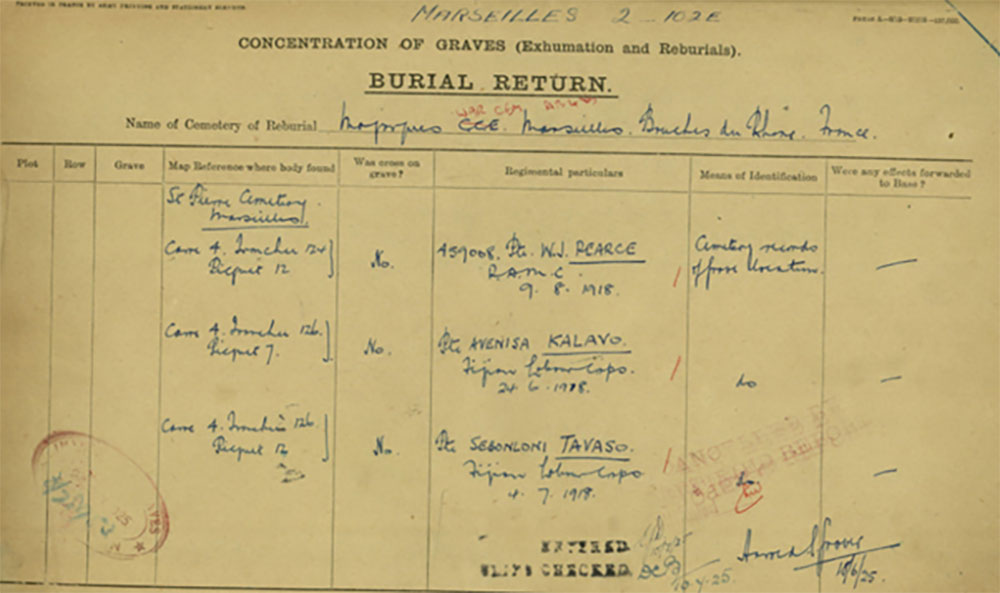 PRINTED IN FRANCE BY ARMY PRINTING AND STATIONERY SERVICES.
MARSEILLES 2 - 102E
CONCENTRATION OF GRAVES (Exhumation and Reburials).
BURIAL RETURN.
WAR CEM
Name of Cemetery of Reburial Marseilles. Bouches du Rhône. France.
Plot Row Grave Map Reference where body found Was cross on grave? Regimental particulars Means of Identification Were any effects forwarded to Base?
St Pierre Cemetery
Marseilles
Carre 4. Tranchee 124 No. 459008. Pte. W.J. PEARCE Cemetery records
Picquet 12 R.A.M.C. of grave location.
9. 8. 1918.
Carre 4. Tranchee 126. No. Pte AVENISA KALAVO.
Picquet 7. Fijian Labour Corps. do
24. 6. 1918.
Carre 4. Tranchee 126 No. Pte SEBONLONI TAVASO.
Picquet 12 Fijian Labour Corps do
4. 7. 1918.
ENTERED
SLIPS CHECKED
10/6/25.